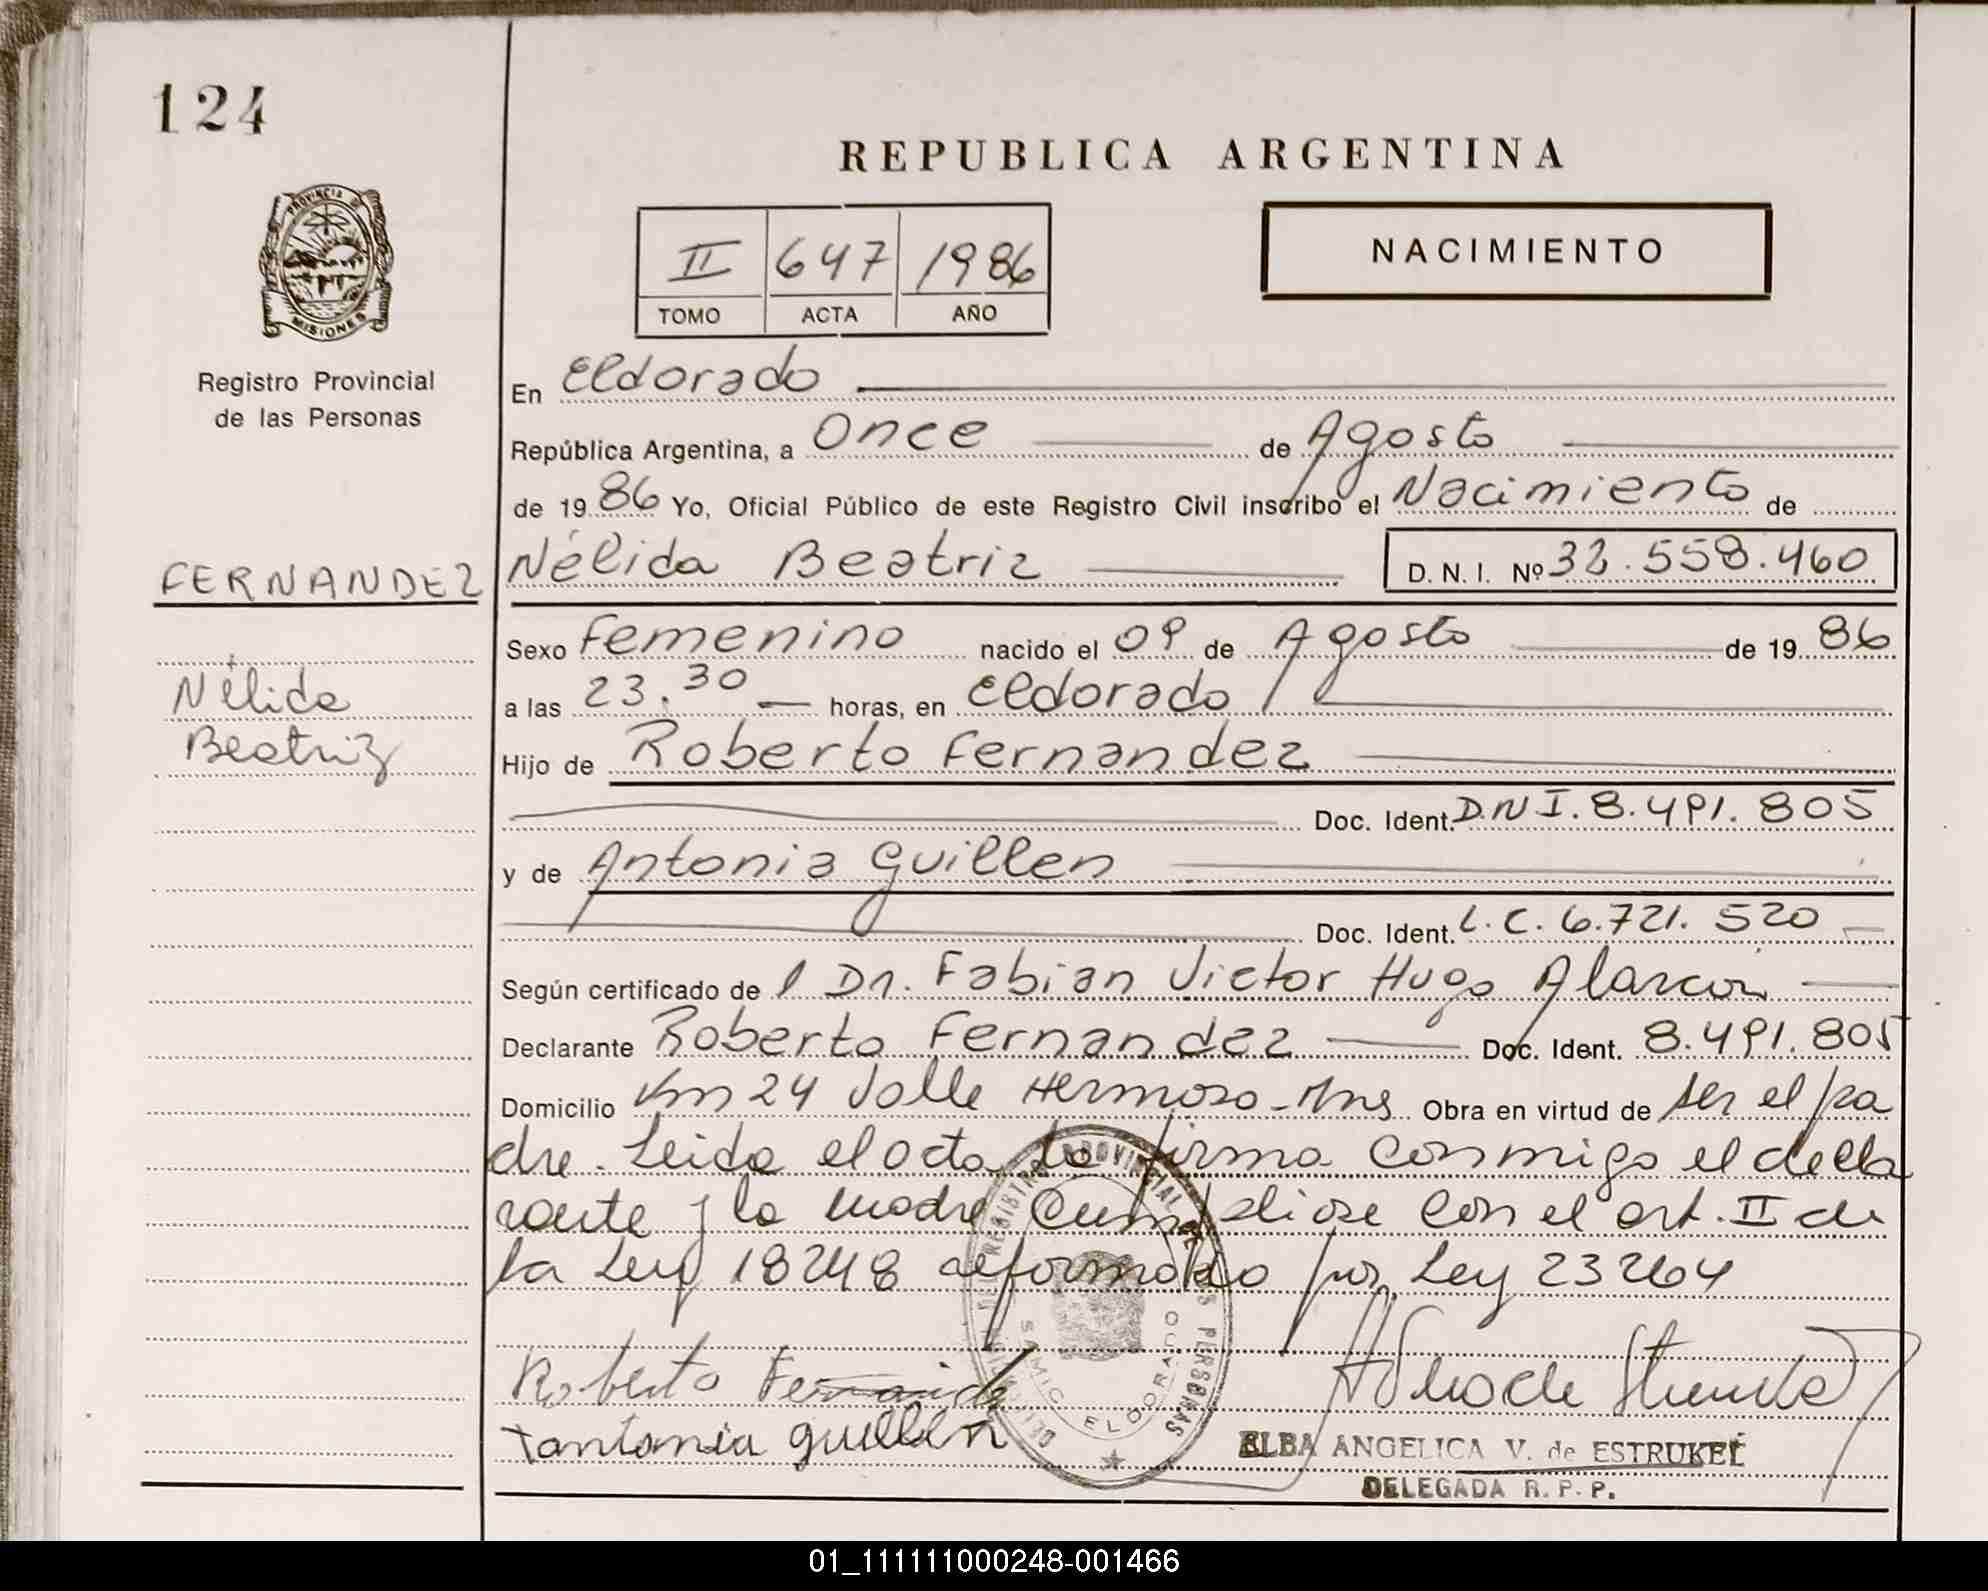 124
REPUBLICA ARGENTINA
PROVINCIA DE
MISIONES
Registro Provincial
de las Personas
II 647 1986
TOMO ACTA AÑO
NACIMIENTO
En Eldorado
República Argentina, a Once de Agosto
de 1986 Yo, Oficial Público de este Registro Civil inscribo el Nacimiento de
FERNANDEZ
Nélida Beatriz D. N. I. Nº 32.558.460
Nélida
Beatriz
Sexo Femenino nacido el 09 de Agosto de 1986
a las 23.30 horas, en Eldorado
Hijo de Roberto Fernandez
Doc. Ident. D.N I. 8.491.805
y de Antonia Guillen
Doc. Ident. L.C. 6.721.520
Según certificado de l Dr. Fabian Victor Hugo Alarcón
Declarante Roberto Fernandez Doc. Ident. 8.491.805
Domicilio Km 24 Valle Hermoso - Mns Obra en virtud de ser el pa
dre. Leida el acta la firma conmigo el decla
rante y la madre Cumpliose con el art. II de
la Ley 18248 reformado por Ley 23264
Roberto Fernande
Antonia guillen
REGISTRO PROVINCIAL DE LAS PERSONAS
SAMIC ELDORADO
ELBA ANGELICA V. de ESTRUKEL
DELEGADA R. P. P.
01_111111000248-001466